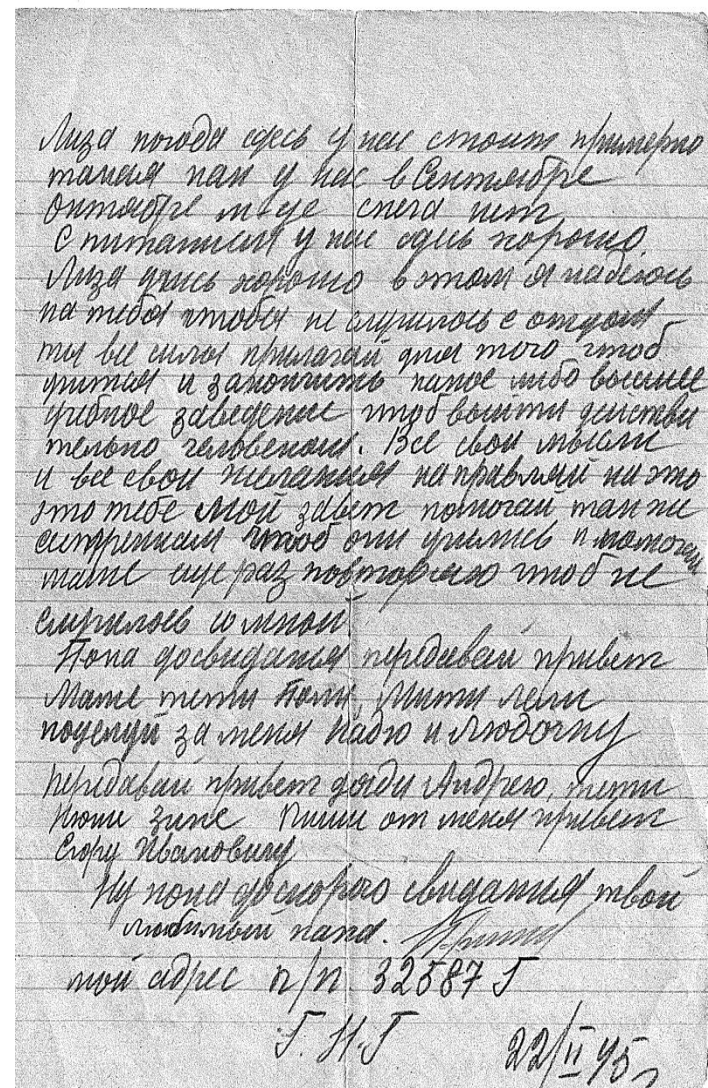 Лиза погода сдесь у нас стоит примерно
такая как у нас в Сентябре
октябре м-це снега нет
С питанием у нас сдесь хорошо
Лиза учись хорошо в этом я надеюсь
на тебя чтобы не случилось с отцом
ты все силы прилагай для того чтоб
учится и закончить какое либо высшее
учебное заведение чтоб выйти действи
тельно человеком. Все свои мысли
и все свои желания направляй на это
это тебе мой завет помогай так же
сестренкам чтоб они учились и помогай
маме еще раз повторяю чтоб не
случилось со мной
Пока досвидания передавай привет
Маме тети Поли, Мити Лели
поцелуй за меня Надю и Людочку
передавай привет дяди Андрею, тети
Нюши Зине Пиши от меня привет
Егору Ивановичу
Ну пока доскорого свидания твой
любимый папа.
мой адрес п/п 32587 Г
Г. Н. Г
22/II 45г